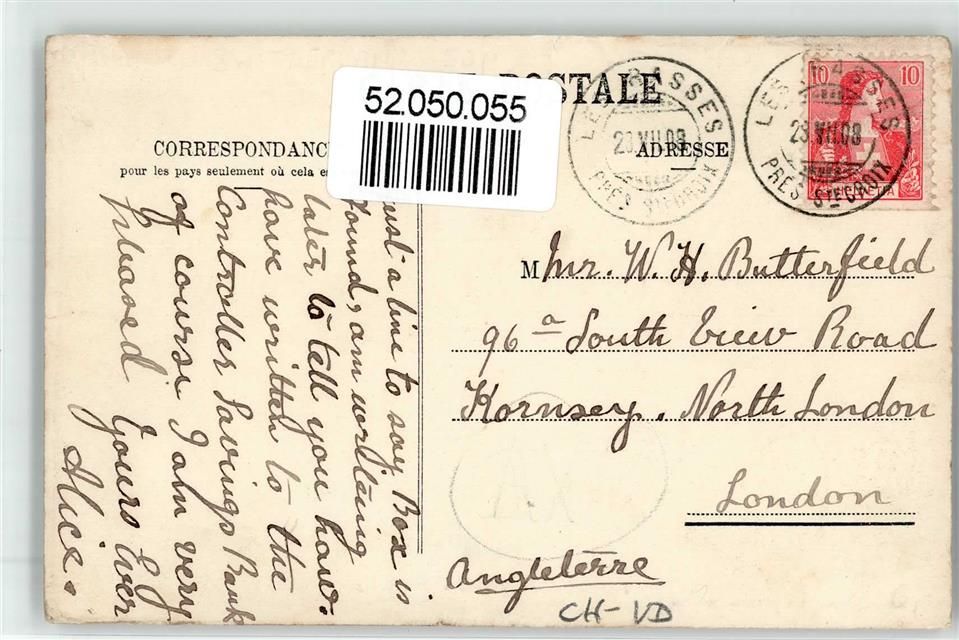 52.050.055
POSTALE
CORRESPONDANC
pour les pays seulement où cela es
ADRESSE
LES RASSES
23.VII.08
PRÈS STE CROIX
LES RASSES
23.VII.08
PRÈS STE CROIX
10 10
HELVETIA
M Mr. W. H. Butterfield
96a South View Road
Hornsey. North London
London
Angleterre
CH-VD
Just a line to say Box is
found, am writing
later to tell you how.
have written to the
Controller Savings Bank
of course I am very
pleased Yours Ever
Alice.